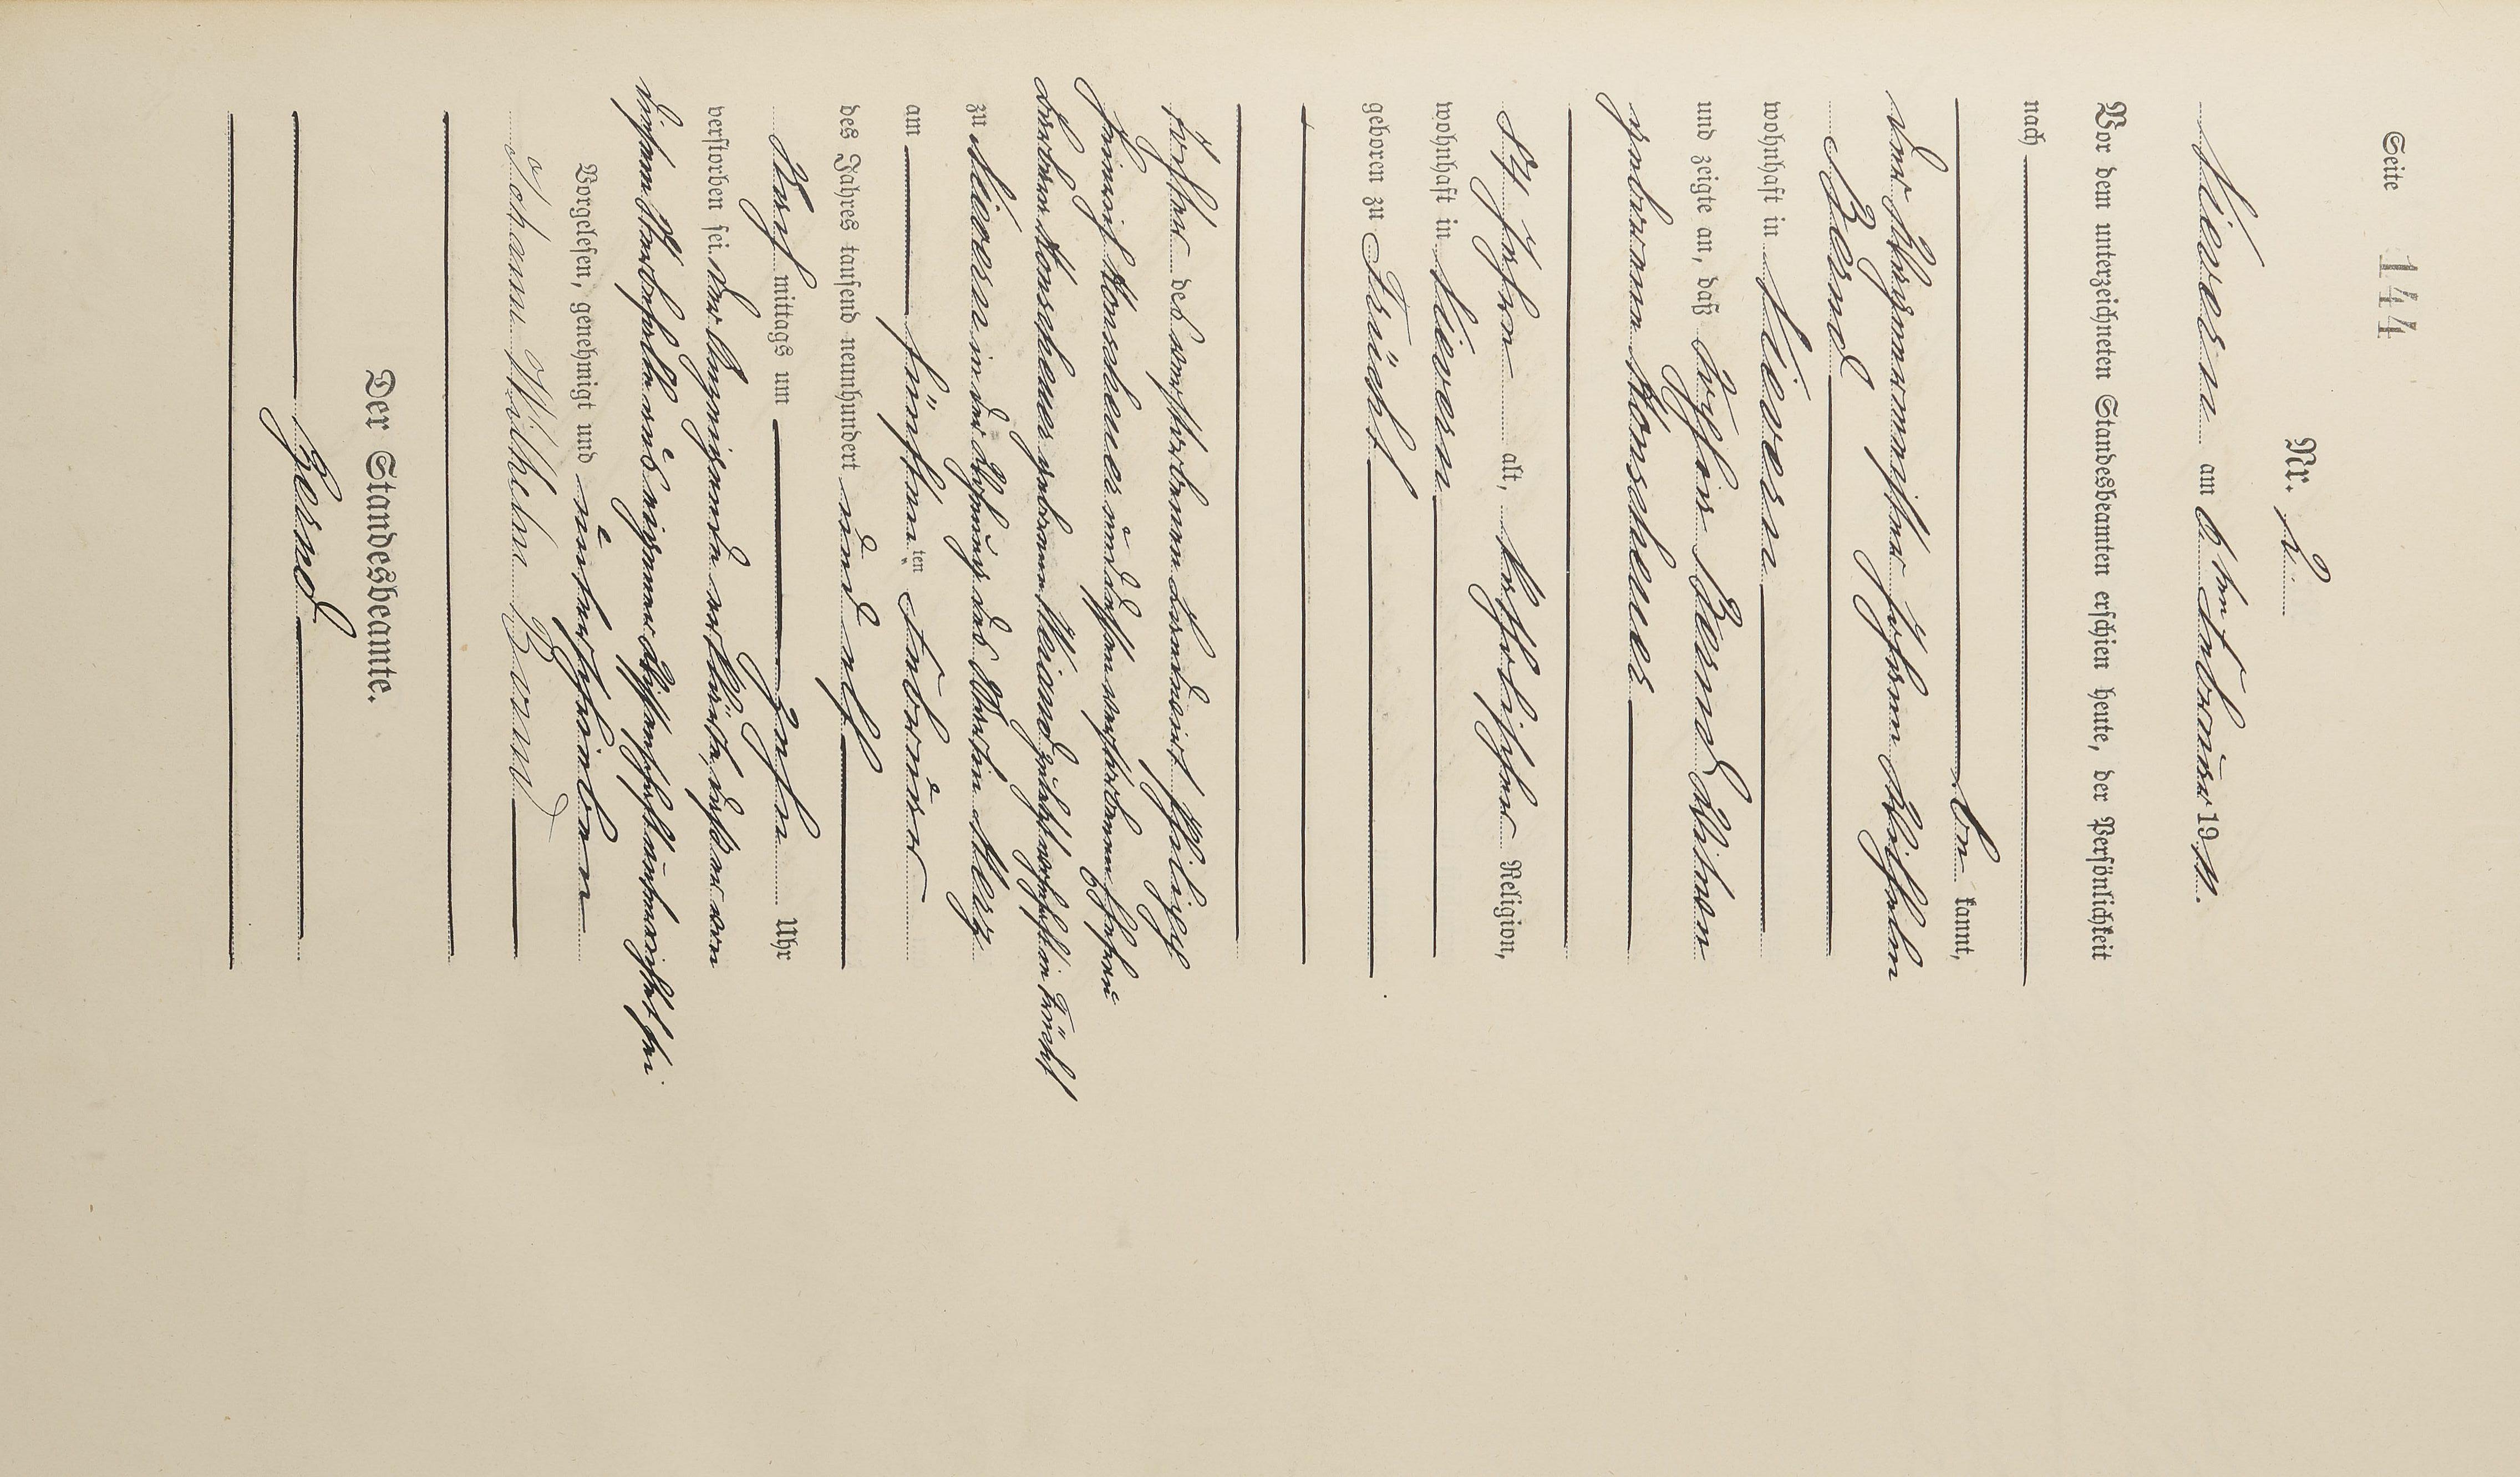 Seite 144
Nr. 2.
Nievern am 6ten Februar 19 11.
Vor dem unterzeichneten Standesbeamten erschien heute, der Persönlichkeit
nach
be kannt,
der Wagenmeister Johann Wilhelm
Bernd
wohnhaft in Nievern
und zeigte an, daß Sophie Bernd Witwe
geborene Monscheuer
84 Jahre alt, katholischer Religion,
wohnhaft in Nievern
geboren zu Frücht
Tochter des verstorbenen Landwirt Philipp
Heinrich Monscheuer und dessen verstorbenen Ehefrau
Monscheuer geborene Weiand zuletzt wohnhaft in Frücht
zu Nievern in der Wohnung des Martin Merz
am fünften ten Februar
des Jahres tausend neunhundert und elf
Nach mittags um zehn Uhr
verstorben sei. Der Anzeigende erklärte, daß er von
diesem Sterbefalle aus eigener Wissenschaft unterrichtet sei
Vorgelesen, genehmigt und unterschrieben
Johann Wilhelm Bernd
Der Standesbeamte.
Bernd